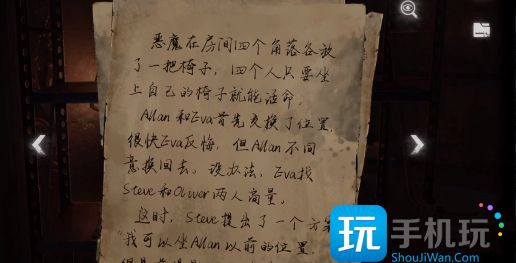 恶魔在房间四个角落各放
了一把椅子，四个人只要坐
上自己的椅子就能活命。
Allan和Eva首先交换了位置，
很快Eva反悔，但Allan不同
意换回去。没办法，Eva找
Steve和Oliver两人商量。
这时，Steve提出了一个方案
"我可以坐Allan以前的位置
玩 手机玩
ShouJiWan.Com